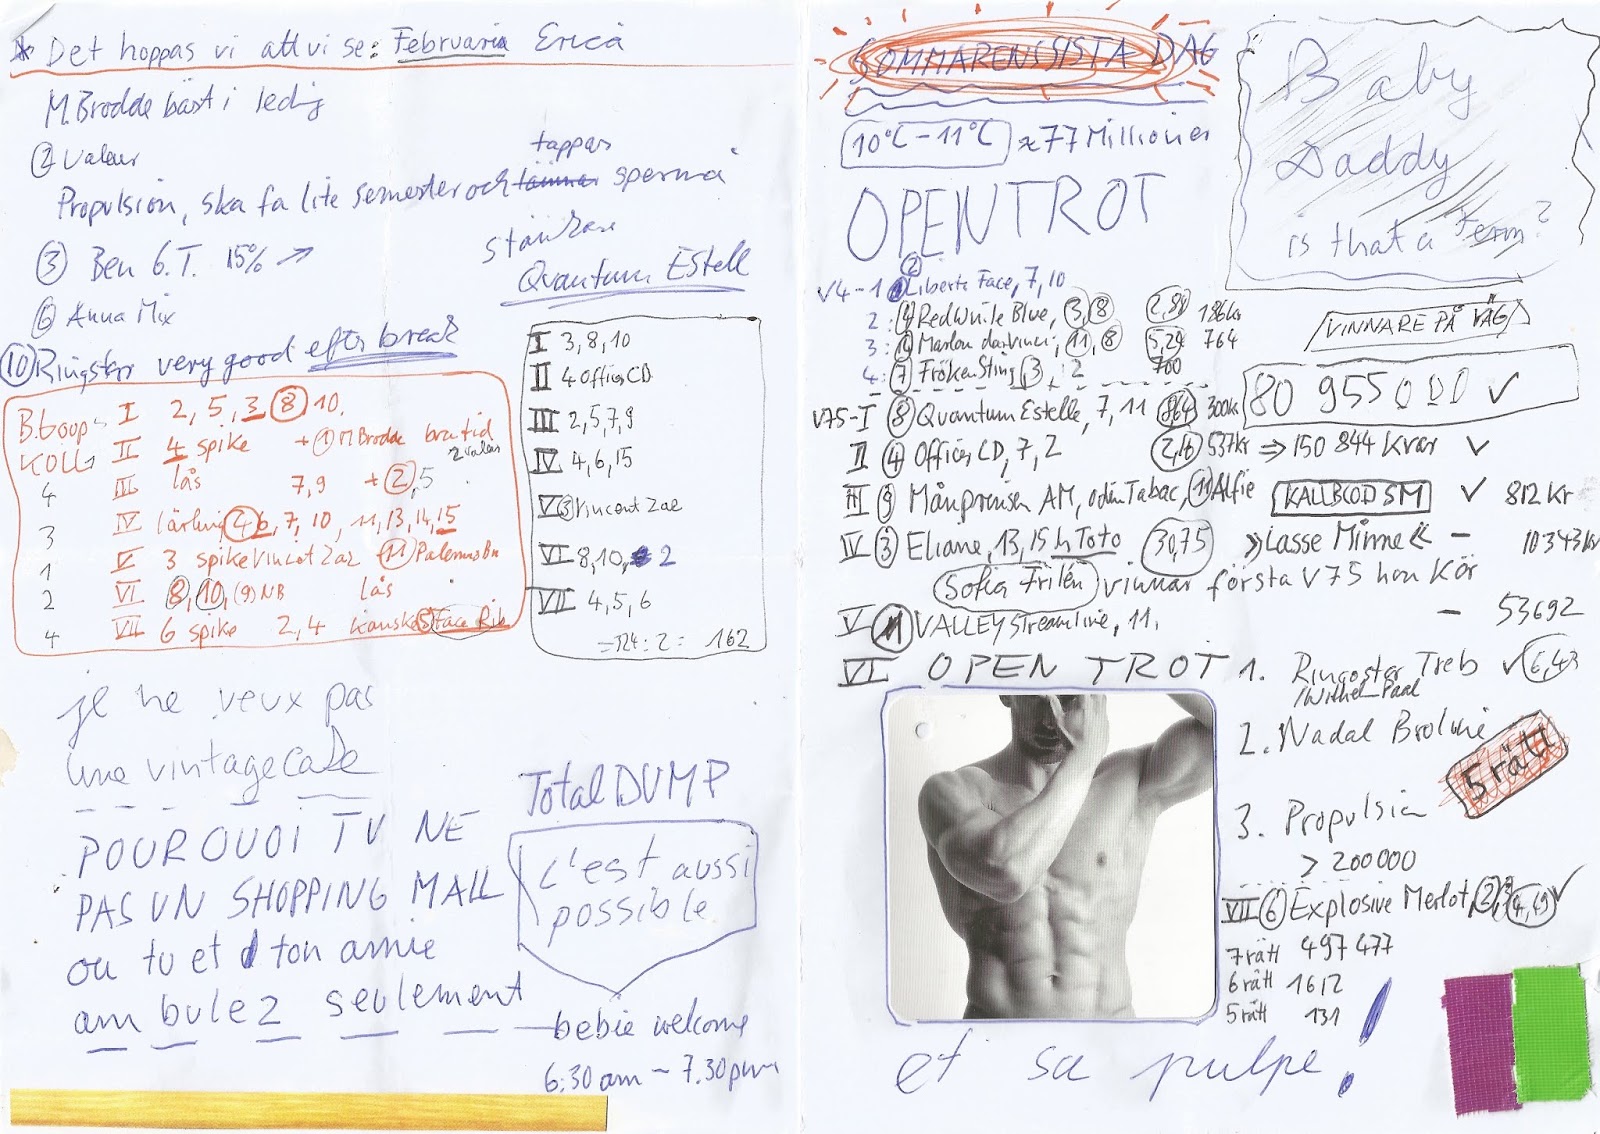 Det hoppas vi att vi se: Februaria Erica
M. Brodde bäst i ledig
② Valeur
tappas
Propulsion, ska fa lite semester och sperma
③ Ben G.T. 15% ↗
stänkare
Quantum EStell
⑥ Anna Mix
⑩ Ringstar very good efter break
B.Goop
KOLLA
I 2, 5, 3, ⑧ 10.
II 4 spike + ① M Brodde bra tid
4 III lås 7,9 + ②,5
3 IV lärling 4 6, 7, 10, 11, 13, 14, 15
1 V 3 spike Vincent Zaz ⑪
2 VI 8, 10, (9) NB lås
4 VII 6 spike 2,4 kanske ⑤ Face Rib
I 3, 8, 10
II 4 Offics CD
III 2, 5, 7, 9
IV 4, 6, 15
V ③ Vincent Zae
VI 8, 10, 2
VII 4, 5, 6
= 324 : 2 = 162
je ne veux pas
une vintage
POURQUOI TU NE
PAS UN SHOPPING MALL
ou tu et ton amie
ambulez seulement
Total DUMP
c'est aussi
possible
bebie welcome
6:30 am – 7.30 pm
SOMMARENS SISTA DAG
10°C – 11°C ≈ 77 Millioner
OPENTROT
Baby
Daddy
is that a term?
V4-1 ② Liberte Face, 7, 10
2: ④ Redwhite Blue, 3, ⑧ 2,84 186kr
3: Marlon davinci, ⑪, 8 5,24 764
4: ⑦ Fröken Sting, 3, 2 700
VINNARE PÅ VÄG
80 955 000 ✓
V75-I ⑧ Quantum Estelle, 7, 11 8,64 300kr
II ④ Offics CD, 7, 2 537kr ⇒ 150 844 Kvar ✓
III ⑨ Månprinsen AM, odin Tabac, ⑪ Alfie KALLBLOD SM ✓ 812 kr
IV ③ Eliane, 13, 15 h Toto 30,75 »Lasse Minne« – 10343kr
Sofia Frilén vinnar första V75 hon Kör
V VALLEY Streamline, 11. – 53692
VI OPEN TROT 1. Ringostar Treb ✓ 6,43
/Withel Paal
2. Nadal Broline
5 rätt
3. Propulsion
> 200000
VII ⑥ Explosive Merlot, 2, 3 4,49 ✓
7 rätt 497 477
6 rätt 1612
5 rätt 131
et sa pulpe!